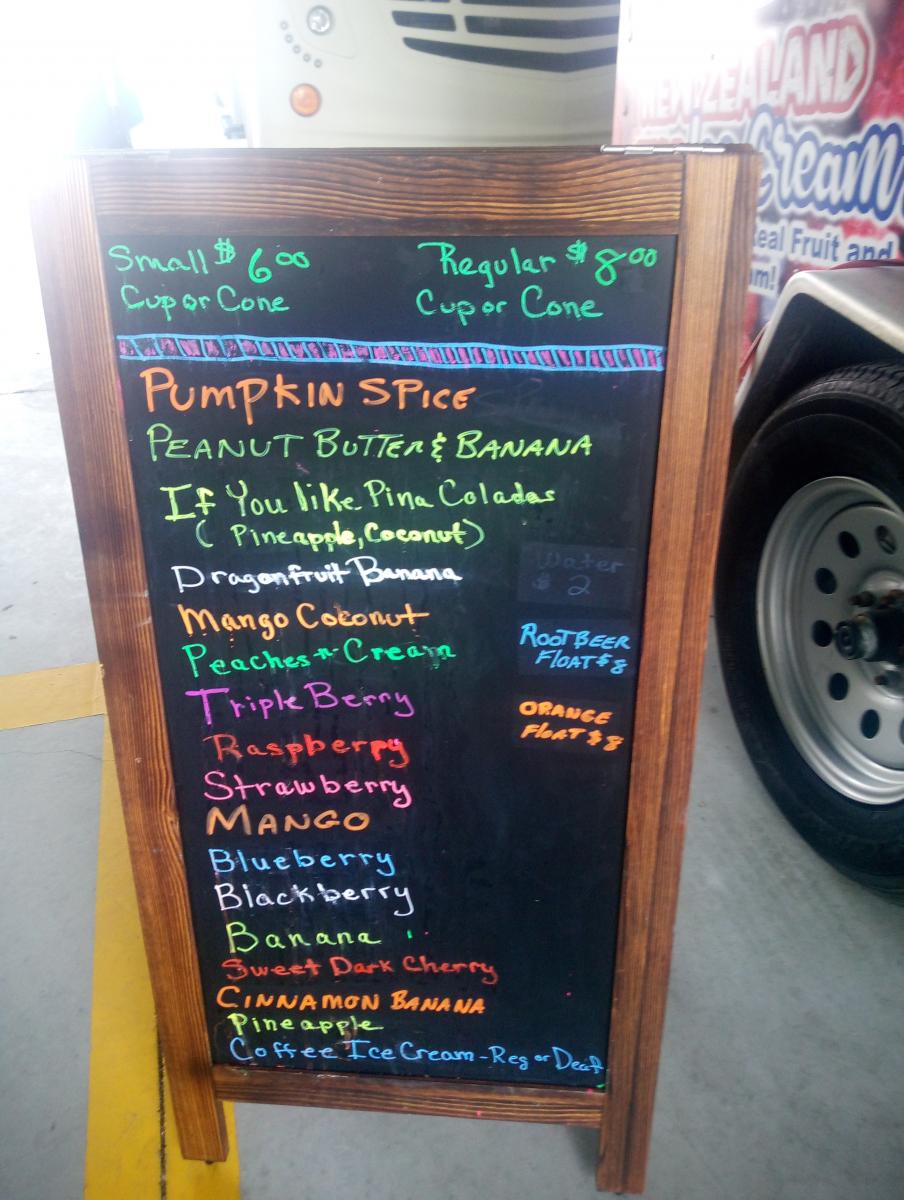 NEW ZEALAND
Ice Cream
Real Fruit and
Small $6.00
Regular $8.00
Cup or Cone
Cup or Cone
PUMPKIN SPICE
PEANUT BUTTER & BANANA
If You like Pina Coladas
( Pineapple, Coconut)
Dragonfruit Banana
Water
$2
Mango Coconut
Peaches n Cream
ROOTBEER
FLOAT $8
Triple Berry
ORANGE
FLOAT $8
Raspberry
Strawberry
MANGO
Blueberry
Blackberry
Banana
Sweet Dark Cherry
CINNAMON BANANA
Pineapple
Coffee Ice Cream - Reg or Decaf